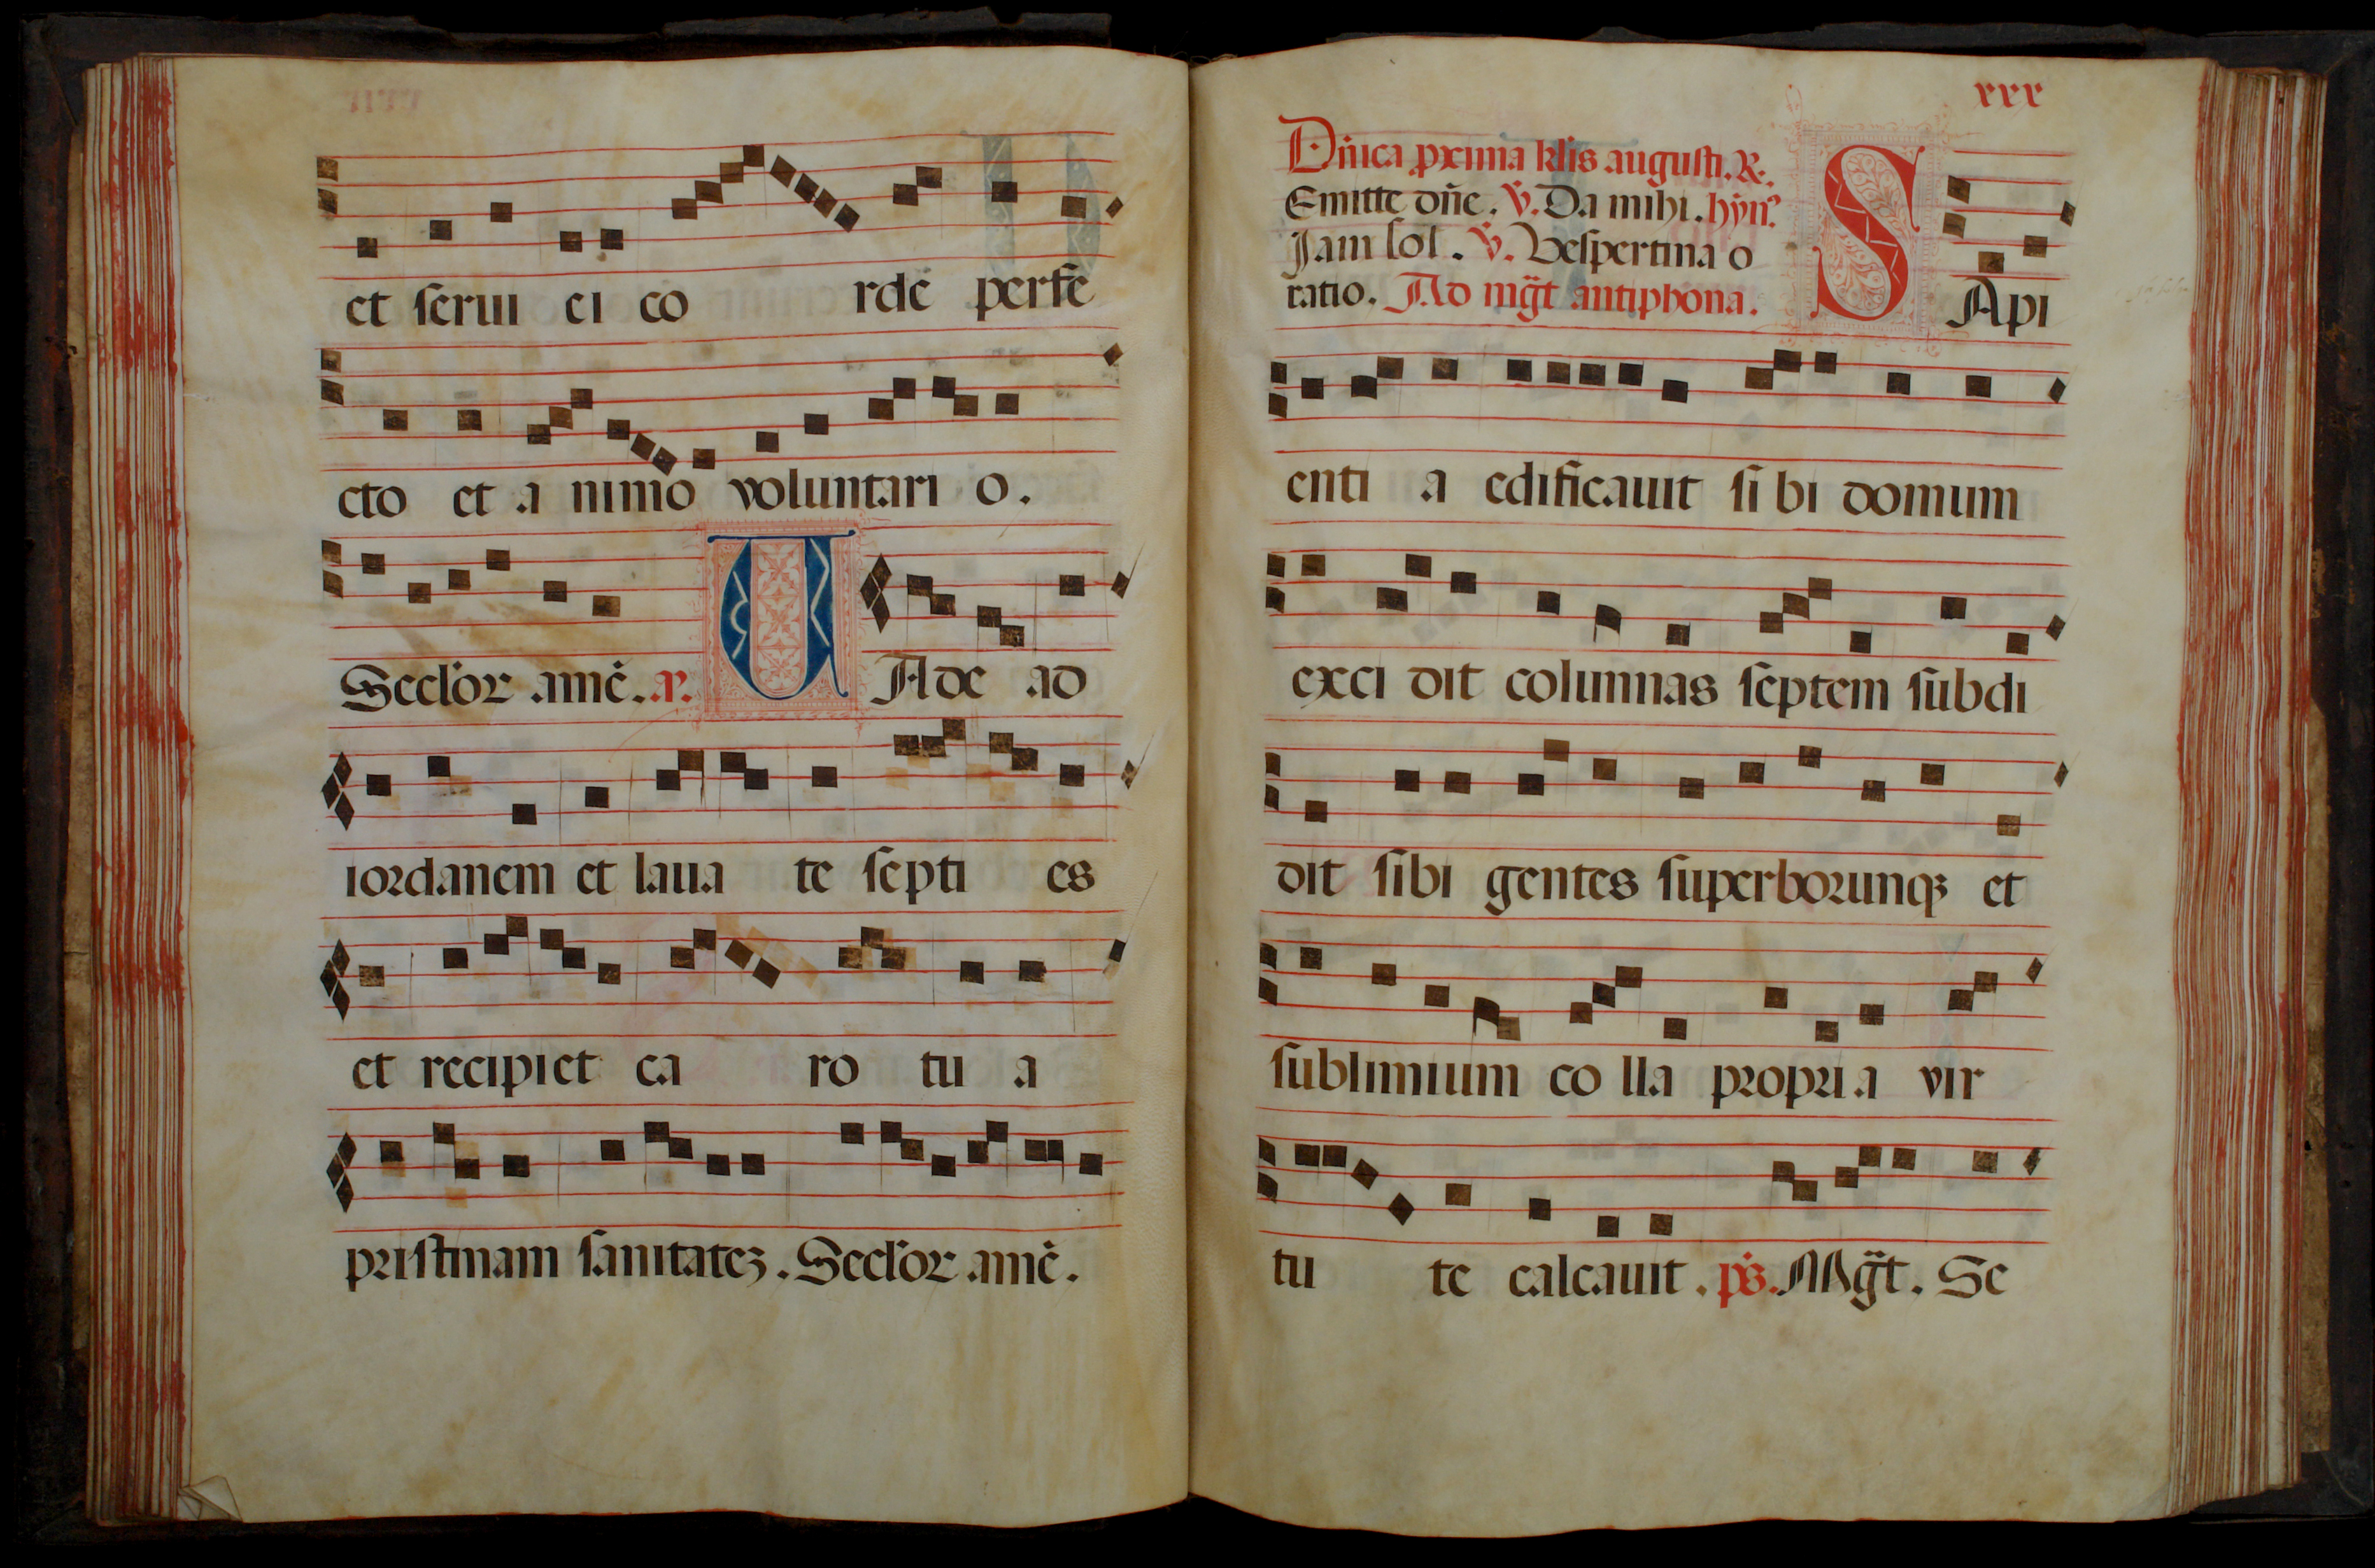 et serui ei co rde perfe
cto et a nimo voluntari o.
Seclor amē. a.
U Ade ad
iordanem et laua te septi es
et recipiet ca ro tu a
pristinam sanitatez. Seclor amē.
xxx
Dñica pxima klis augusti. R.
Emitte dñe. V. Da mihi. hyn?
Jam sol. V. Vespertina o
ratio. Ad mg̃t antiphona.
S Api
enti a edificauit si bi domum
exci dit columnas septem subdi
dit sibi gentes superborunqꝫ et
sublimium co lla propri a vir
tu te calcauit. ps. Mg̃t. Se